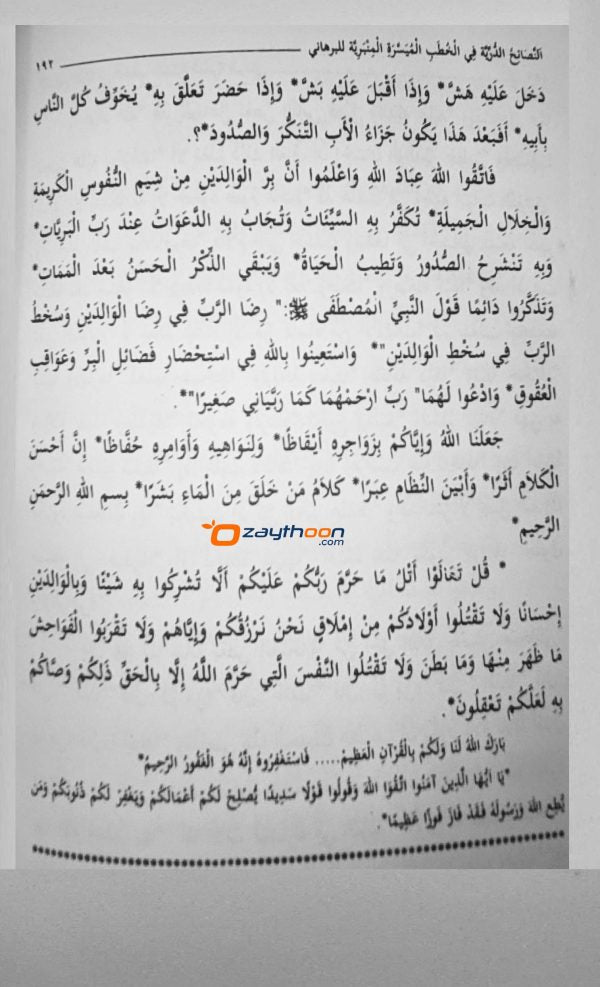 النَّصَائِحُ الدُّرِّيَّة فِي الْخُطَبِ الْمُيَسَّرَةِ الْمِنْبَرِيَّة للبرهاني
١٩٢
دَخَلَ عَلَيْهِ هَشَّ* وَإِذَا أَقْبَلَ عَلَيْهِ بَشَّ* وَإِذَا حَضَرَ تَعَلَّقَ بِهِ* يُخَوِّفُ كُلَّ النَّاسِ
بِأَبِيهِ* أَفَبَعْدَ هَذَا يَكُونُ جَزَاءُ الْأَبِ التَّنَكُّرَ وَالصُّدُودَ*؟.
فَاتَّقُوا اللهَ عِبَادَ اللهِ وَاعْلَمُوا أَنَّ بِرَّ الْوَالِدَيْنِ مِنْ شِيَمِ النُّفُوسِ الْكَرِيمَةِ
وَالْخِلَالِ الْجَمِيلَةِ* تُكَفَّرُ بِهِ السَّيِّئَاتُ وَتُجَابُ بِهِ الدَّعَوَاتُ عِنْدَ رَبِّ الْبَرِيَّاتِ*
وَبِهِ تَنْشَرِحُ الصُّدُورُ وَتَطِيبُ الْحَيَاةُ* وَيَبْقَي الذِّكْرُ الْحَسَنُ بَعْدَ الْمَمَاتِ*
وَتَذَكَّرُوا دَائِمًا قَوْلَ النَّبِيِّ الْمُصْطَفَى ﷺ:" رِضَا الرَّبِّ فِي رِضَا الْوَالِدَيْنِ وَسُخْطُ
الرَّبِّ فِي سُخْطِ الْوَالِدَيْنِ"* وَاسْتَعِينُوا بِاللهِ فِي اسْتِحْضَارِ فَضَائِلِ الْبِرِّ وَعَوَاقِبِ
الْعُقُوقِ* وَادْعُوا لَهُمَا" رَبِّ ارْحَمْهُمَا كَمَا رَبَّيَانِي صَغِيرًا"*.
جَعَلَنَا اللهُ وَإِيَّاكُمْ بِزَوَاجِرِهِ أَيْقَاظًا* وَلِنَوَاهِيهِ وَأَوَامِرِهِ حُفَّاظًا* إِنَّ أَحْسَنَ
الْكَلَامِ أَثَرًا* وَأَبْيَنَ النِّظَامِ عِبَرًا* كَلَامُ مَنْ خَلَقَ مِنَ الْمَاءِ بَشَرًا* بِسمِ اللهِ الرَّحمَنِ
الرَّحِيمِ*
Ozaythoon
.com
* قُلْ تَعَالَوْا أَتْلُ مَا حَرَّمَ رَبُّكُمْ عَلَيْكُمْ أَلَّا تُشْرِكُوا بِهِ شَيْئًا وَبِالْوَالِدَيْنِ
إِحْسَانًا وَلَا تَقْتُلُوا أَوْلَادَكُمْ مِنْ إِمْلَاقٍ نَحْنُ نَرْزُقُكُمْ وَإِيَّاهُمْ وَلَا تَقْرَبُوا الْفَوَاحِشَ
مَا ظَهَرَ مِنْهَا وَمَا بَطَنَ وَلَا تَقْتُلُوا النَّفْسَ الَّتِي حَرَّمَ اللَّهُ إِلَّا بِالْحَقِّ ذَلِكُمْ وَصَّاكُمْ
بِهِ لَعَلَّكُمْ تَعْقِلُونَ*.
بَارَكَ اللهُ لَنَا وَلَكُمْ بِالْقُرْآنِ الْعَظِيمْ..... فَاسْتَغْفِرُوهُ إِنَّهُ هُوَ الْغَفُورُ الرَّحِيمُ*
"يَا أَيُّهَا الَّذِينَ آمَنُوا اتَّقُوا اللهَ وَقُولُوا قَوْلًا سَدِيدًا يُصْلِحْ لَكُمْ أَعْمَالَكُمْ وَيَغْفِرْ لَكُمْ ذُنُوبَكُمْ وَمَن
يُطِعِ اللهَ وَرَسُولَهُ فَقَدْ فَازَ فَوْزًا عَظِيمًا*.